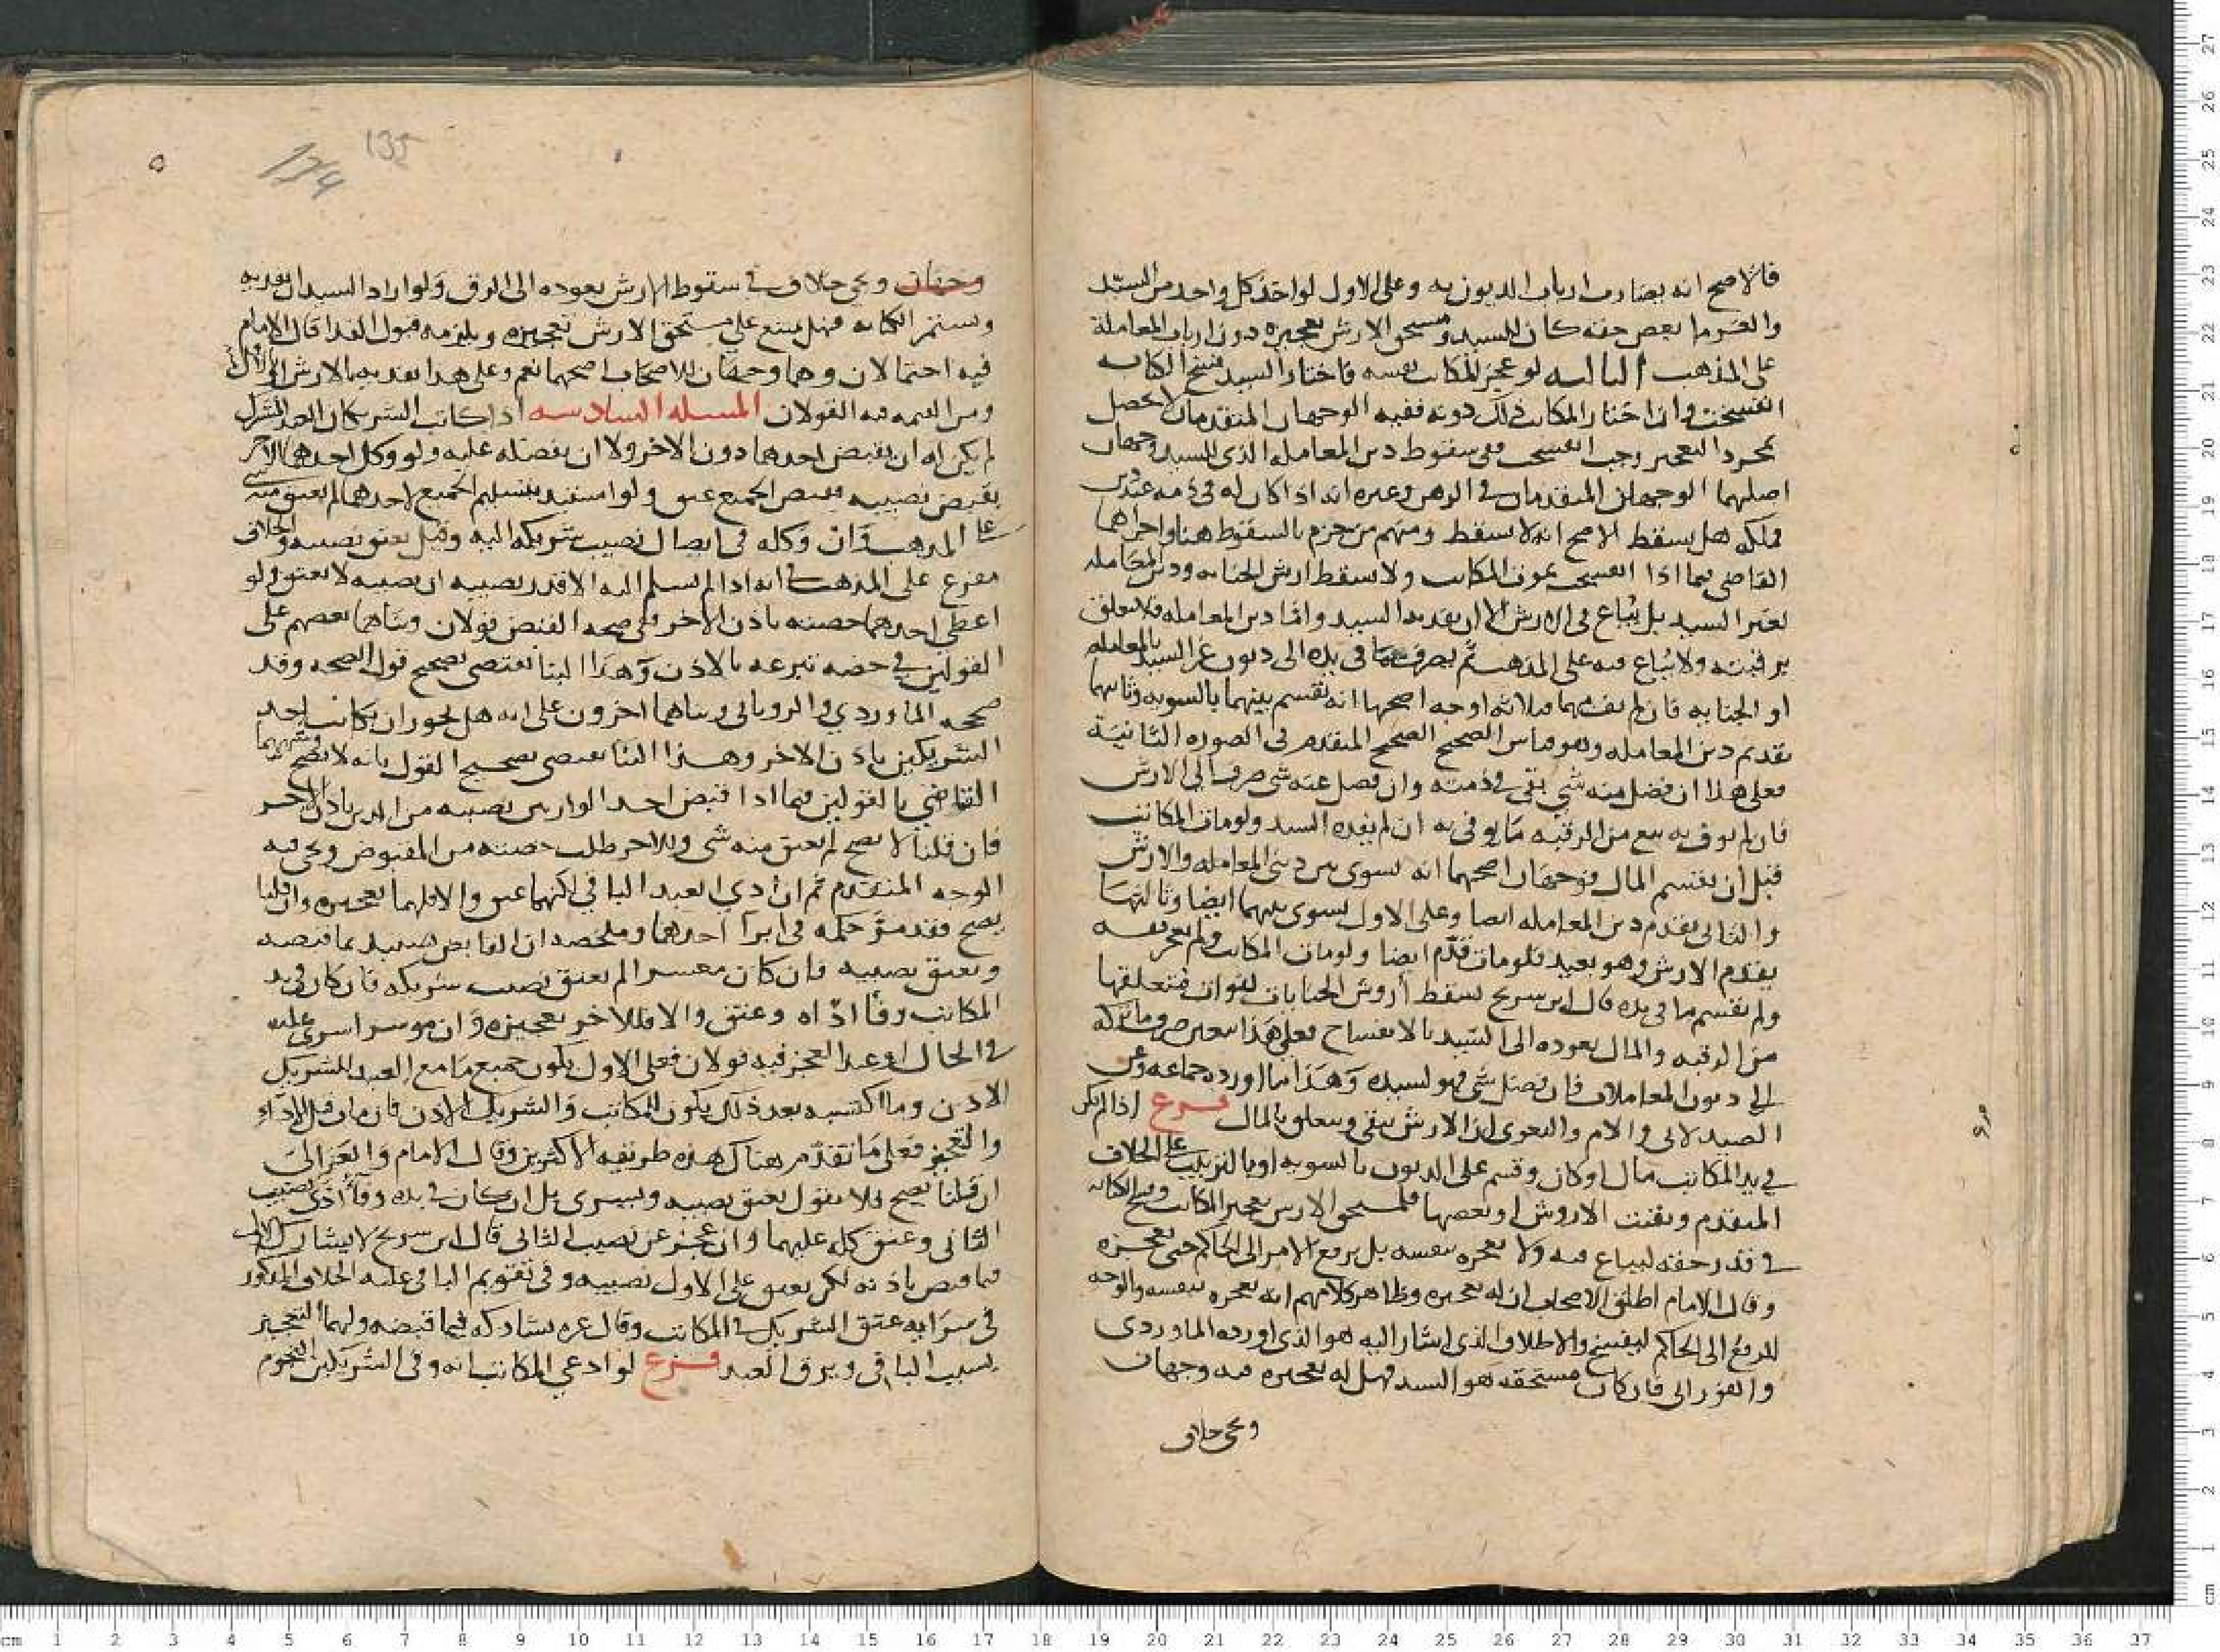 فالاصح انه يضارب ارباب الديون به وعلى الاول لو اخذ كل واحد من السيد
والغرما بعض حقه كان للسيد ومستحق الارش تعجيزه دون ارباب المعاملة
على المذهب الثالثه لو عجز المكاتب نفسه فاختار السيد فسخ الكتابه
انفسخت وان اختار المكاتب ذلك دونه ففيه الوجهان المتقدمان لا يحصل
بمجرد التعجيز وحيث انفسخت ففي سقوط دين المعامله الذي للسيد وجهان
اصلهما الوجهان المتقدمان في الرهن وغيره انه اذا كان له في ذمة عبد دين
فملكه هل يسقط الاصح انه لا يسقط ومنهم من جزم بالسقوط هنا واجراهما
القاضي فيما اذا انفسخت بموت المكاتب ولا يسقط ارش الجنايه ودين المعامله
لغير السيد بل يباع في الارش الا ان يفديه السيد واما دين المعامله فلا يتعلق
برقبته ولا يباع فيه على المذهب ثم يصرف ما في يده الى ديون غير السيد بالمعامله
او الجنايه فان لم يف بهما فثلاثه اوجه اصحها انه يقسم بينهما بالسويه وثانيها
يقدم دين المعامله وهو قياس الصحيح المتقدم في الصوره الثانية
فعلى هذا ان فضل منه شي بقي في ذمته وان فضل عنه شي صرف الى الارش
فان لم يوف به بيع من الرقبه ما يوفى به ان لم يفده السيد ولو مات المكاتب
قبل ان يقسم المال فوجهان اصحهما انه يسوى بين ديني المعامله والارش
والثاني يقدم دين المعامله ايضا وعلى الاول يسوى بينهما ايضا وثالثها
يقدم الارش وهو بعيد فلو مات قدم ايضا ولو مات المكاتب ولم يعجز نفسه
ولم يقسم ما في يده قال ابن سريج تسقط أروش الجنايات لفوات متعلقها
من الرقبه والمال بعوده الى السيد بالانفساخ فعلى هذا يتعين صرف ما تركه
الى ديون المعاملات فان فضل شي فهو لسيده وهذا ما اورده جماعه وعن
الصيدلاني والامام والبغوي ان الارش يبقى ويتعلق بالمال فرع اذا لم يكن
في يد المكاتب مال او كان وقسم على الديون بالسويه او بالترتيب على الخلاف
المتقدم وبقيت الاروش او بعضها فلمستحق الارش تعجيز المكاتب وفسخ الكتابه
في قدر حقه ليباع فيه ولا يعجزه بنفسه بل يرفع الامر الى الحاكم حتى يعجزه
وقال الامام اطلق الاصحاب ان له تعجيزه وظاهر كلامهم انه يعجزه بنفسه والوجه
الرفع الى الحاكم ليفسخ والاطلاق الذي اشار اليه هو الذي اورده الماوردي
والغزالي فان كان مستحقه هو السيد فهل له تعجيزه فيه وجهان
ويجي خلاف
135
134
وجهان ويجي خلاف في سقوط الارش بعوده الى الرق ولو اراد السيد ان يفديه
ويستمر الكتابه فهل يمتنع على مستحق الارش تعجيزه ويلزمه قبول الفدا قال الامام
فيه احتمالان وهما وجهان للاصحاب اصحهما نعم وعلى هذا يفديه بالارش او بالاقل
ومن القيمه فيه القولان المسله السادسه اذا كاتب الشريكان العبد المشترك
لم يكن له ان يقبض احدهما دون الاخر ولا ان يفضله عليه ولو وكل احدهما الاخر
بقبض نصيبه فقبض الجميع عتق ولو استبد بتسليم الجميع لاحدهما لم يعتق منه شي
على المذهب وان وكله في ايصال نصيب شريكه اليه وقيل يعتق نصيبه والخلاف
مفرع على المذهب في انه اذا لم يسلم اليه الا قدر نصيبه ان نصيبه لا يعتق ولو
اعطى احدهما حصته باذن الاخر ففي صحه القبض قولان وبناهما بعضهم على
القولين في صحه تبرعه بالاذن وهذا البنا يقتضي تصحيح قول الصحه وقد
صححه الماوردي والروياني وبناهما اخرون على انه هل يجوز ان يكاتب احد
الشريكين باذن الاخر وهذا البنا يقتضي تصحيح القول بانه لا يصح وشبههما
القاضي بالقولين فيما اذا قبض احد الوارثين نصيبه من الدين باذن الاخر
فان قلنا لا يصح لم يعتق منه شي وللاخر طلب حصته من المقبوض ويجي فيه
الوجه المتقدم ثم ان أدى العبد الباقي اليهما عتق والا فلهما تعجيزه وان قلنا
يصح فقد مر حكمه في ابرا احدهما وملخصه ان القابض يستبد بما قبضه
ويعتق نصيبه فان كان معسرا لم يعتق نصيب شريكه فان كان في يد
المكاتب وفا اداه وعتق والا فللاخر تعجيزه وان موسرا سرى عليه
في الحال او عند العجز فيه قولان فعلى الاول يكون جميع ما مع العبد للشريك
الاذن وما اكتسبه بعد ذلك يكون للمكاتب والشريك الاذن فان مات قبل الاداء
والتعجيز فعلى ما تقدم هناك هذه طريقه الاكثرين وقال الامام والغزالي
ان قلنا يصح فلا نقول يعتق نصيبه ويسري بل ان كان في يده وفا ادى نصيب
الثاني وعتق كله عليهما وان عجز عن نصيب الثاني قال ابن سريج لا يشارك الاول
فيما قبض باذنه لكن يعتق على الاول نصيبه وفي تقويم الباقي عليه الخلاف المذكور
في سرايه عتق الشريك في المكاتب وقال غيره يشاركه فيما قبضه ولهما التعجيز
بسبب الباقي ويرق العبد فرع لو ادعى المكاتب انه وفى الشريكين النجوم